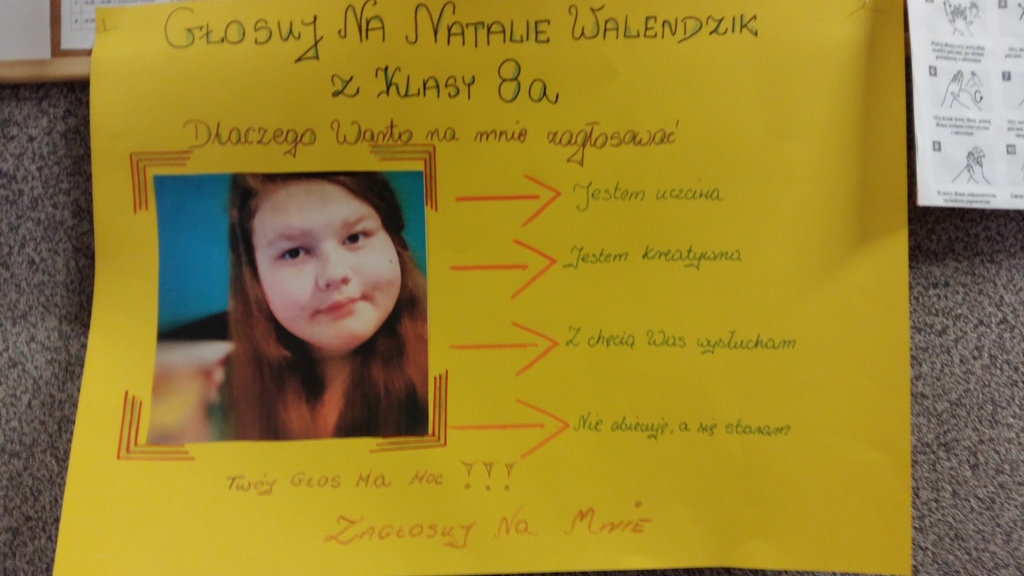 GŁOSUJ NA NATALIE WALENDZIK
Z KLASY 8a
Dlaczego Warto na mnie zagłosować
Jestem uczciwa
Jestem kreatywna
Z chęcią Was wysłucham
Nie obiecuję, a się staram
TWÓJ GŁOS MA MOC !!!
ZAGŁOSUJ NA MNIE